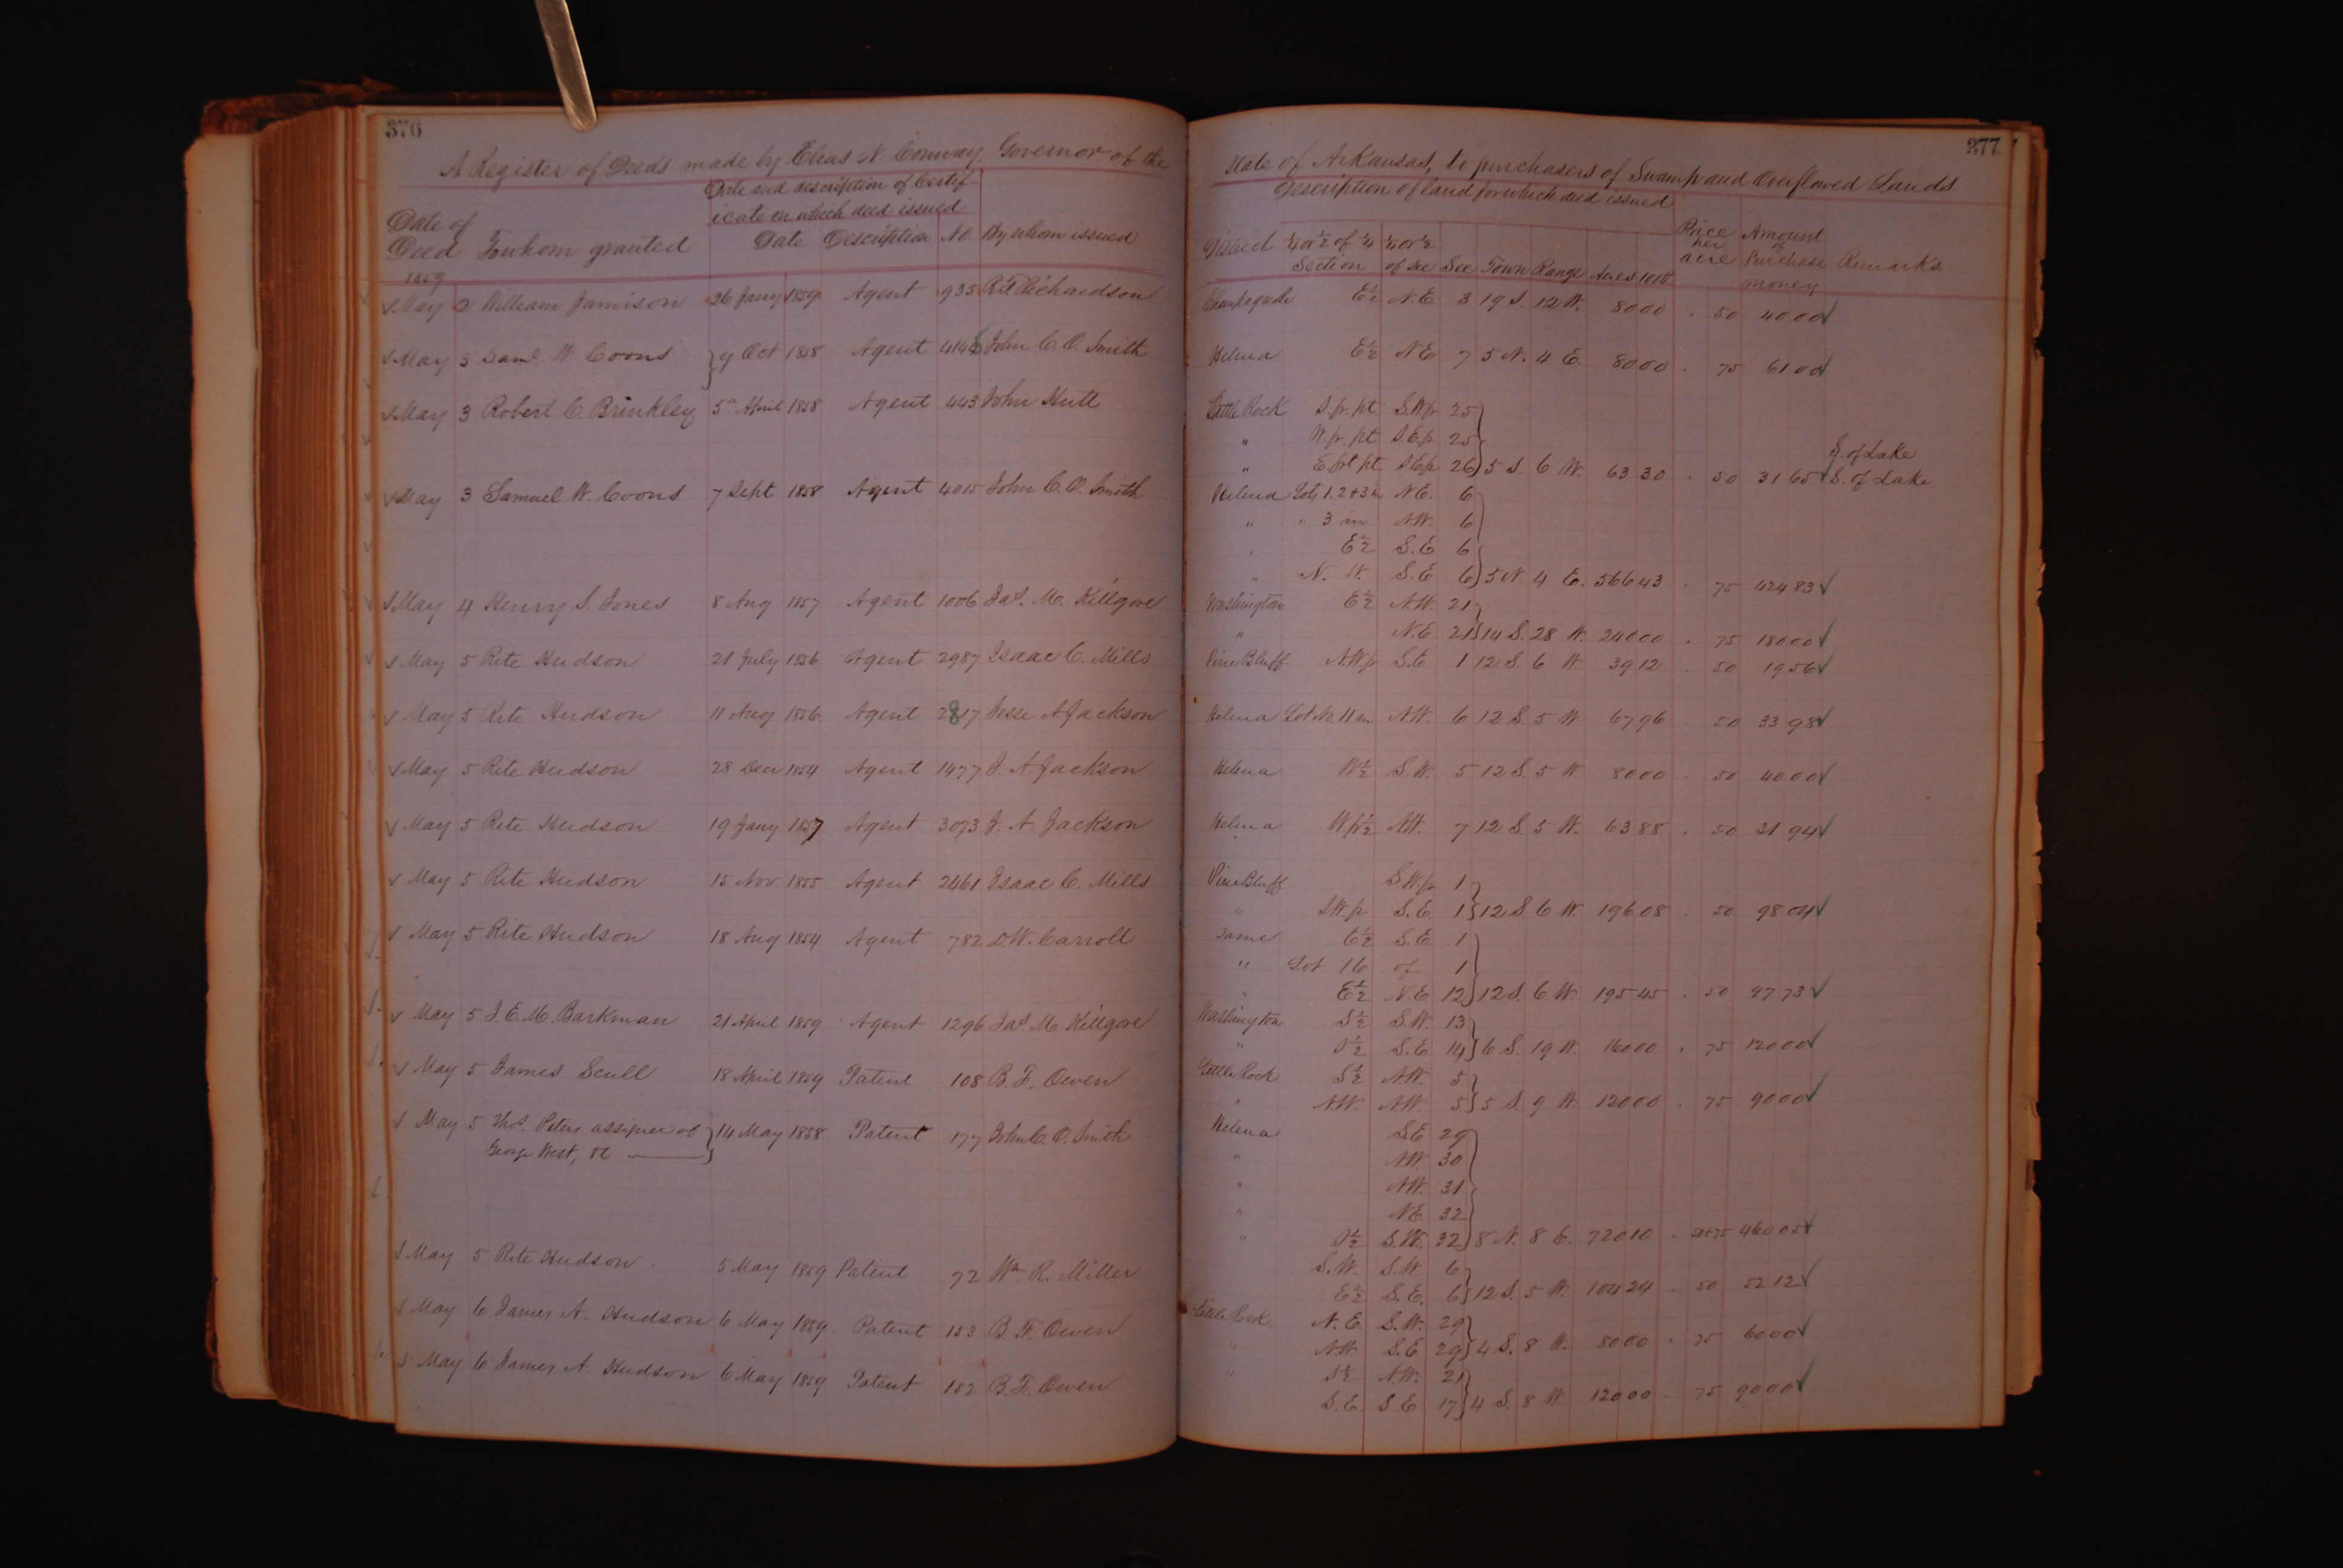 376
A Register of Deeds made by Elias N. Conway, Governor of the
Date and description of Certif-
icate on which deed issued
Date of
Deed To whom granted Date Description No. By whom issued
1859
May 2 William Jamison 26 Jany 1859 Agent 935 R.F. Richardson
May 3 Saml. W. Coons 9 Oct 1858 Agent John C. O. Smith
May 3 Robert C. Brinkley 5 April 1858 Agent 443 John Hutt
May 3 Samuel W. Coons 7 Sept 1858 Agent 4015 John C. O. Smith
May 4 Henry S. Jones 8 Aug 1857 Agent 1006 Jas. M. Killgore
May 5 Rite Hudson 21 July 1856 Agent 2987 Isaac C. Mills
May 5 Rite Hudson 11 Aug 1856 Agent 2817 Jesse A Jackson
May 5 Rite Hudson 28 Decr 1854 Agent 1477 J. A. Jackson
May 5 Rite Hudson 19 Jany 1857 Agent 3073 J. A. Jackson
May 5 Rite Hudson 15 Nov 1855 Agent 2461 Isaac C. Mills
May 5 Rite Hudson 18 Aug 1854 Agent 782 D.W. Carroll
May 5 J. E. M. Barkman 21 April 1859 Agent 1296 Jas M Killgore
May 5 James Scull 18 April 1859 Patent 108 B. F. Owen
May 5 Thos. Peters assignee of 14 May 1858 Patent 177 John C. O. Smith
George West, &c
May 5 Rite Hudson 5 May 1859 Patent 72 Wm. R. Miller
May 6 James A. Hudson 6 May 1859 Patent 153 B. F. Owen
May 6 James A Hudson 6 May 1859 Patent 152 B. F. Owen
277
State of Arkansas, to purchasers of Swamp and Overflowed Lands
Description of land for which deed issued
Price per acre Amount of Purchase money Remarks
District ¼ or ½ of ¼ Section ¼ or ½ of Sec Sec Town Range Acres 100th
Champagnole E½ N.E. 3 19 S. 12 W. 80 00 50 40 00
Helena E½ N.E 7 5 N. 4 E. 80 00 75 61 00
Little Rock S. fr. pt S.W fr 25
" W. fr. pt S.E fr 25
S. of Lake
" E. frl pt. S.E fr 26 5 S. 6 W. 63 30 50 31 65 S. of Lake
Helena Lots 1. 2 & 3 in N.E. 6
" " 3 in N.W. 6
" E½ S.E 6
" N. W. S.E 6 5 N. 4 E. 566 43 75 424 83
Washington E½ N.W. 21
" N.E 21 14 S. 28 W. 240 00 75 180 00
Pine Bluff N.W fr S.E 1 12 S. 6 W. 39 12 50 19 56
Helena Lot No 11 in N.W. 6 12 S. 5 W 67 96 50 33 98
Helena W½ S.W. 5 12 S. 5 W 80 00 50 40 00
Helena W fr ½ N.W. 7 12 S. 5 W. 63 88 50 31 94
Pine Bluff S.W fr 1
" S.W fr S.E. 1 12 S. 6 W. 196 08 50 98 04
Same E½ S.E. 1
" Lot 16 of 1
" E½ N.E 12 12 S. 6 W. 195 45 50 97 73
Washington S½ S.W. 13
" S½ S.E 14 6 S. 19 W. 160 00 75 120 00
Little Rock S½ N.W. 5
" N.W. N.W. 5 5 S. 9 W. 120 00 75 90 00
Helena S.E 29
" N.W. 30
" N.W. 31
" N.E. 32
" S½ S.W. 32 8 N. 8 E. 720 10 50&75 460 05
S.W. S.W. 6
E½ S.E. 6 12 S. 5 W. 104 24 50 52 12
Little Rock N.E. S.W. 29
" N.W. S.E 29 4 S. 8 W. 80 00 75 60 00
" S½ N.W. 21
S.E. S.E 17 4 S. 8 W. 120 00 75 90 00